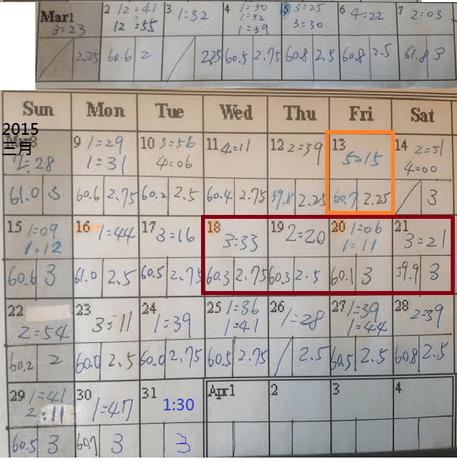 Mar1 2 12=41 3 1=32 4 1=30 5 3=25 6 4=22 7 2=03
3=23 12=55 1=32 3=30
1=39
2.25 60.6 2 2.25 60.5 2.75 60.8 2.5 60.8 2.5 61.8 3
Sun Mon Tue Wed Thu Fri Sat
2015
三月
9 1=29 10 3=56 11 4=11 12 2=39 13 14 2=51
1=31 4=06 5=15 4=00
61.0 60.6 2.75 60.2 2.5 60.4 2.75 59.8 2.25 60.7 2.25 3
15 1=09 16 1=44 17 3=16 18 3=33 19 2=20 20 1=06 21 3=21
1=12 1=11
60.6 3 61.0 2.5 60.5 2.75 60.3 2.75 60.3 2.5 60.1 3 59.9 3
22 23 24 25 1=36 26 27 1=39 28
2=54 3=11 1=39 1=41 1=28 1=44 2=39
60.2 2 60.0 2.5 60.0 2.75 60.5 2.75 2.5 60.5 2.5 60.8 2.5
29 1=41 30 31 1:30 Apr1 2 3 4
2=11 1=47
60.5 3 60.7 3 3